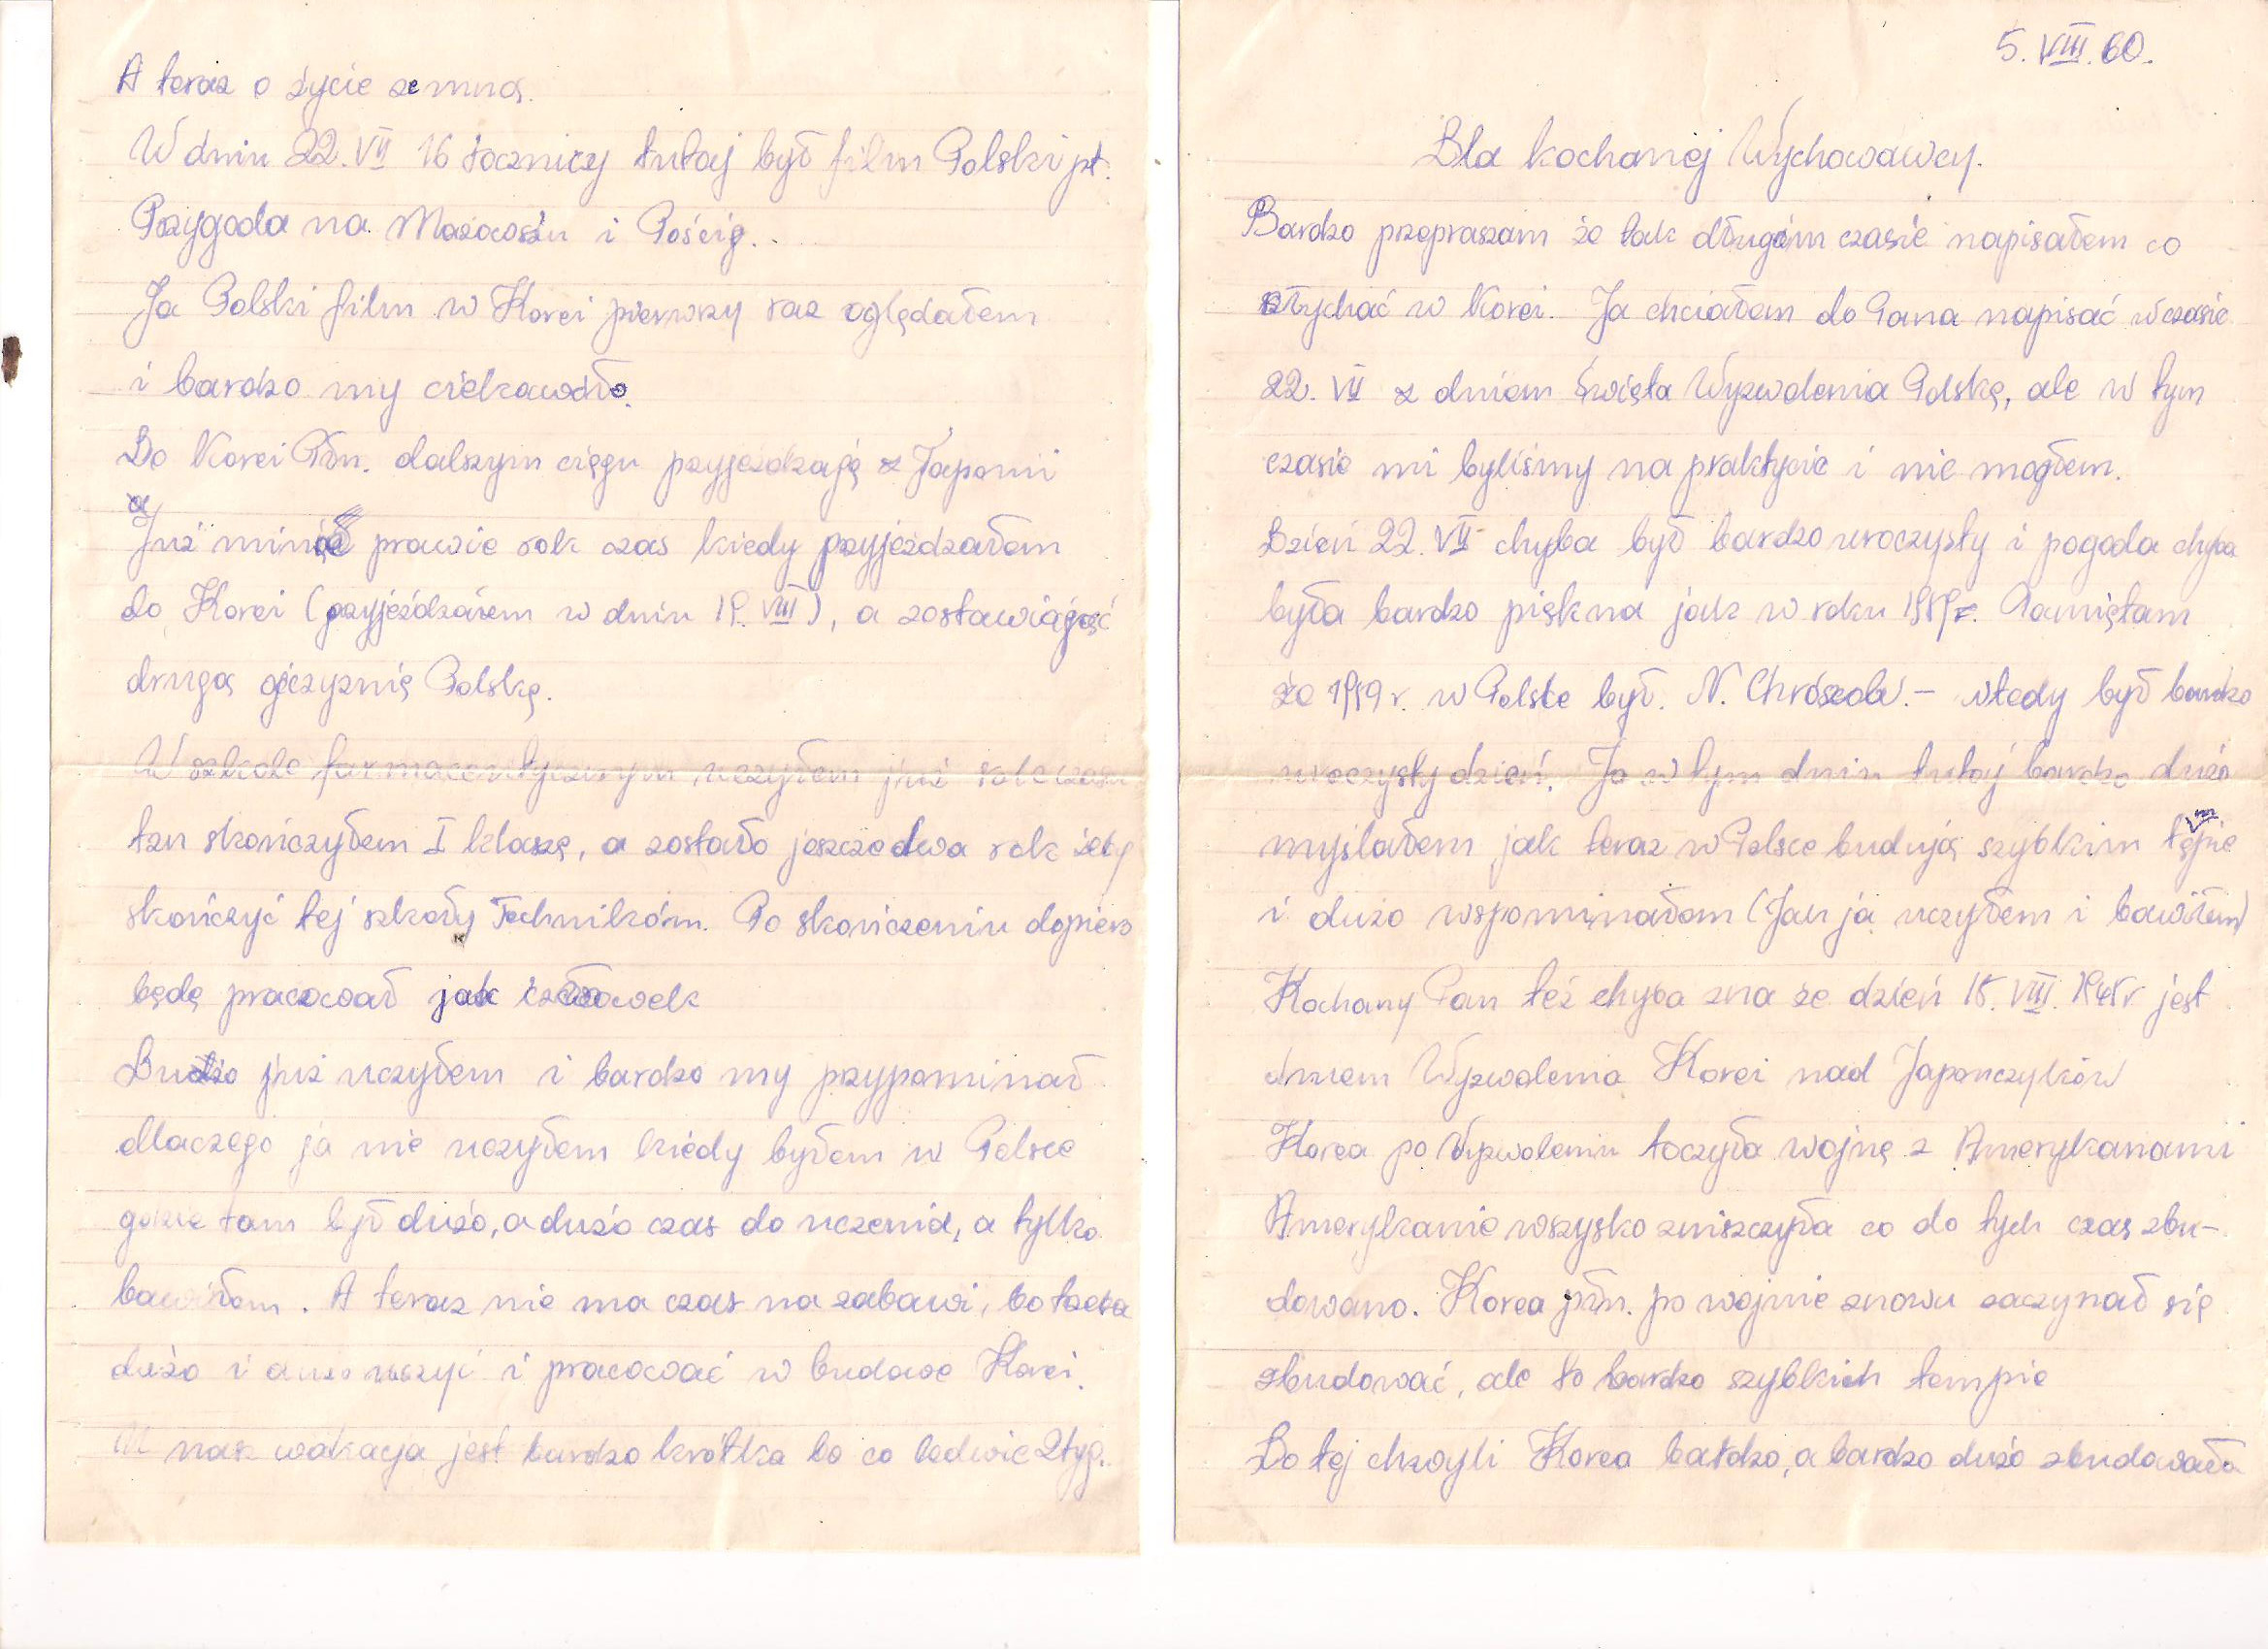 5. VIII. 60.
Dla kochanej Wychowawcy.
Bardzo przepraszam że tak długim czasie napisałem co
słychać w Korei. Ja chciałem do Pana napisać w czasie
22. VII z dniem święta Wyzwolenia Polskę, ale w tym
czasie mi byliśmy na praktycie i nie mogłem.
Dzień 22. VII chyba był bardzo uroczysty i pogoda chyba
była bardzo piękna jak w roku 1959r. Pamiętam
że 1959 r. w Polsce był. N. Chrószcow. – wtedy był bardzo
uroczysty dzień. Ja w tym dniu tutaj bardzo dużo
myślałem jak teraz w Polsce budują szybkim tępie
i dużo wspominałam (Jak ja uczyłem i bawiłem)
Kochany Pan też chyba zna że dzień 15. VIII. 1945r jest
dniem Wyzwolenia Korei nad Japończyków
Korea po Wyzwoleniu toczyła wojnę z Amerykanami
Amerykanie wszysko zniszczyła co do tych czas zbu-
dowano. Korea płn. po wojnie znowu zaczynał się
zbudować, ale to bardzo szybkich tempie
Do tej chwyli Korea bardzo, a bardzo dużo zbudowała
A teraz o życie zemną.
W dniu 22. VII 16 rocznicy tutaj był film Polski pt.
Przygoda na Mazowszu i Pościg.
Ja Polski film w Korei pierwszy raz oglądałem
i bardzo my ciekawiło.
Do Korei Płn. dalszym ciągu przyjeżdzają z Japonii
a
Już minął prawie rok czas kiedy przyjeżdzałem
do Korei (przyjeżdzałem w dniu 19. VIII), a zostawiająć
drugą ojczyznię Polskę.
W szkole farmaceutycznym uczyłem już rok czasu
tzn skończyłem I klasę, a zostało jeszcze dwa rok żeby
skończyć tej szkoły Technikóm. Po skończeniu dopiero
będę pracował jak człowek
Dużo już uczyłem i bardzo my przypominał
dlaczego ja nie uczyłem kiedy byłem w Polsce
gdzie tam był dużo, a dużo czas do uczenia, a tylko
bawiłem. A teraz nie ma czas na zabawi, bo trzeba
dużo i dużo uczyć i pracować w budowe Korei.
U nas wakacja jest bardzo krótka bo co ledwie 2 tyg.